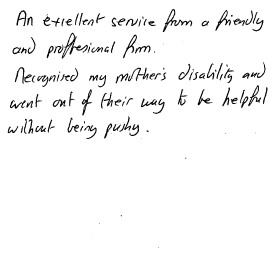 An excellent service from a friendly
and proffesional firm.
Recognised my mother's disability and
went out of their way to be helpful
without being pushy.